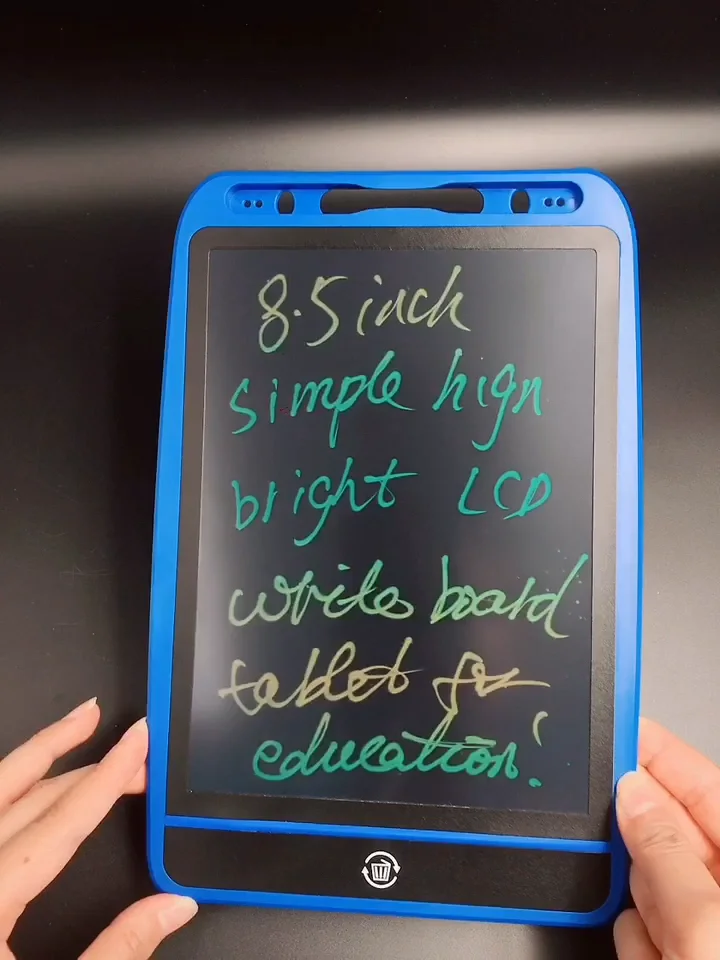 8.5 inch
simple hign
bright LCD
write board
tablet for
education!